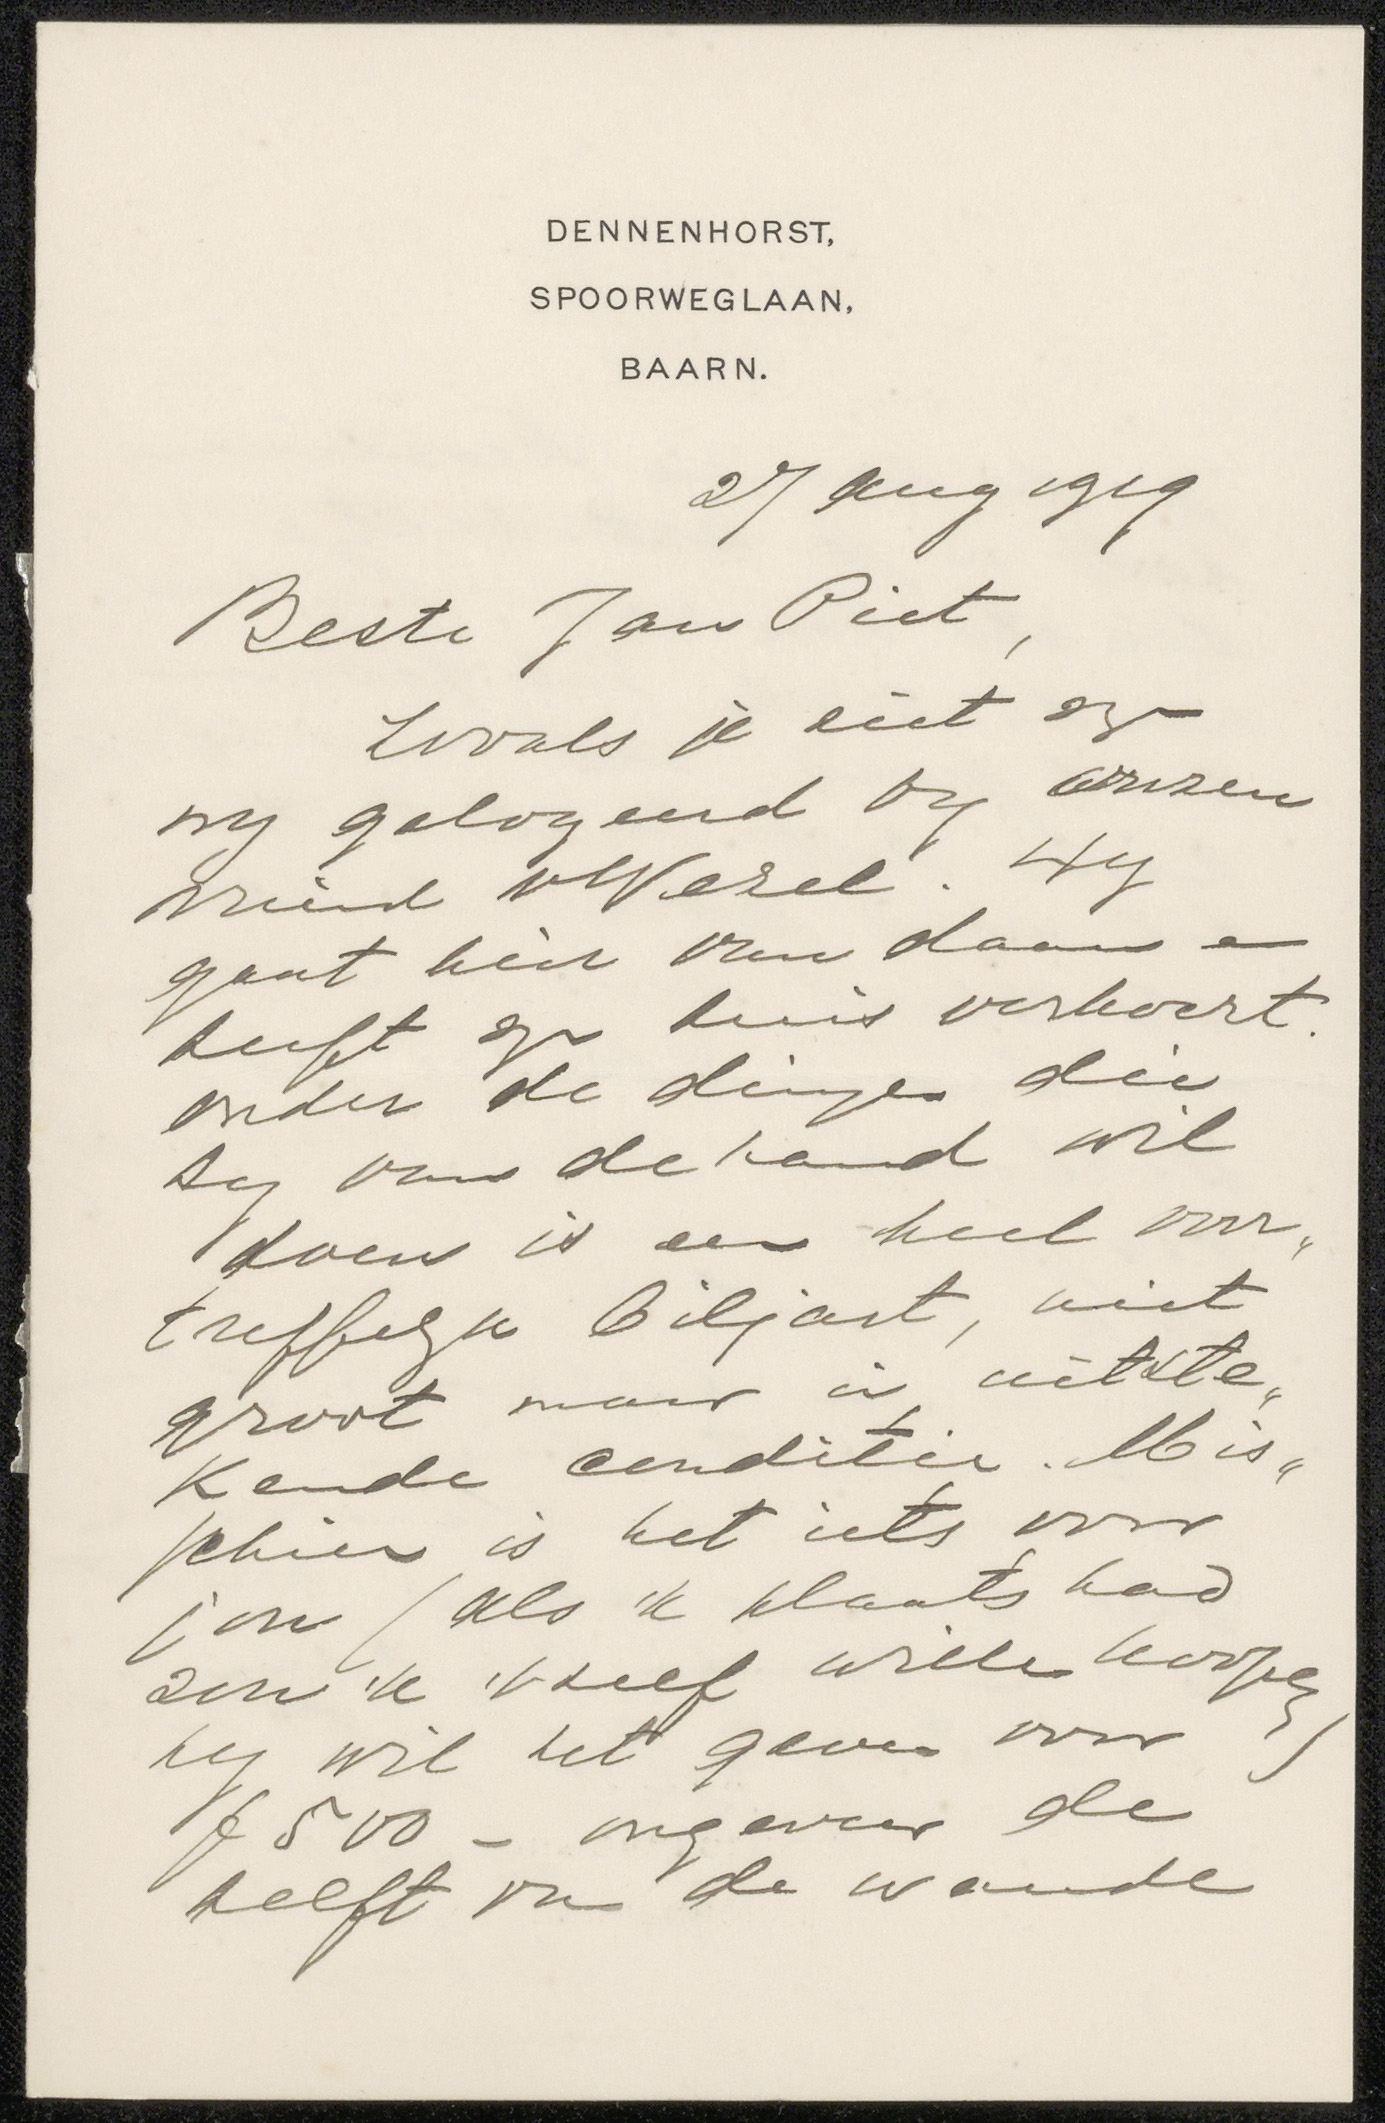 DENNENHORST,
SPOORWEGLAAN,
BAARN.
27 Aug 1919
Beste Jan Piet,
Zooals je ziet zyn
wy gelogeerd by onzen
vriend v Wezel. Hy
gaat hier van daan en
heeft zyn huis verkocht.
onder de dingen die
hy van de hand wil
doen is een heel voor„
treffelyk biljart, niet
groot maar in uitste„
kende conditie. Mis„
schien is het iets voor
jou (als ik plaats had
zou ik 't zelf willen koopen)
hy wil het geven voor
f 500 – ongeveer de
helft van de waarde